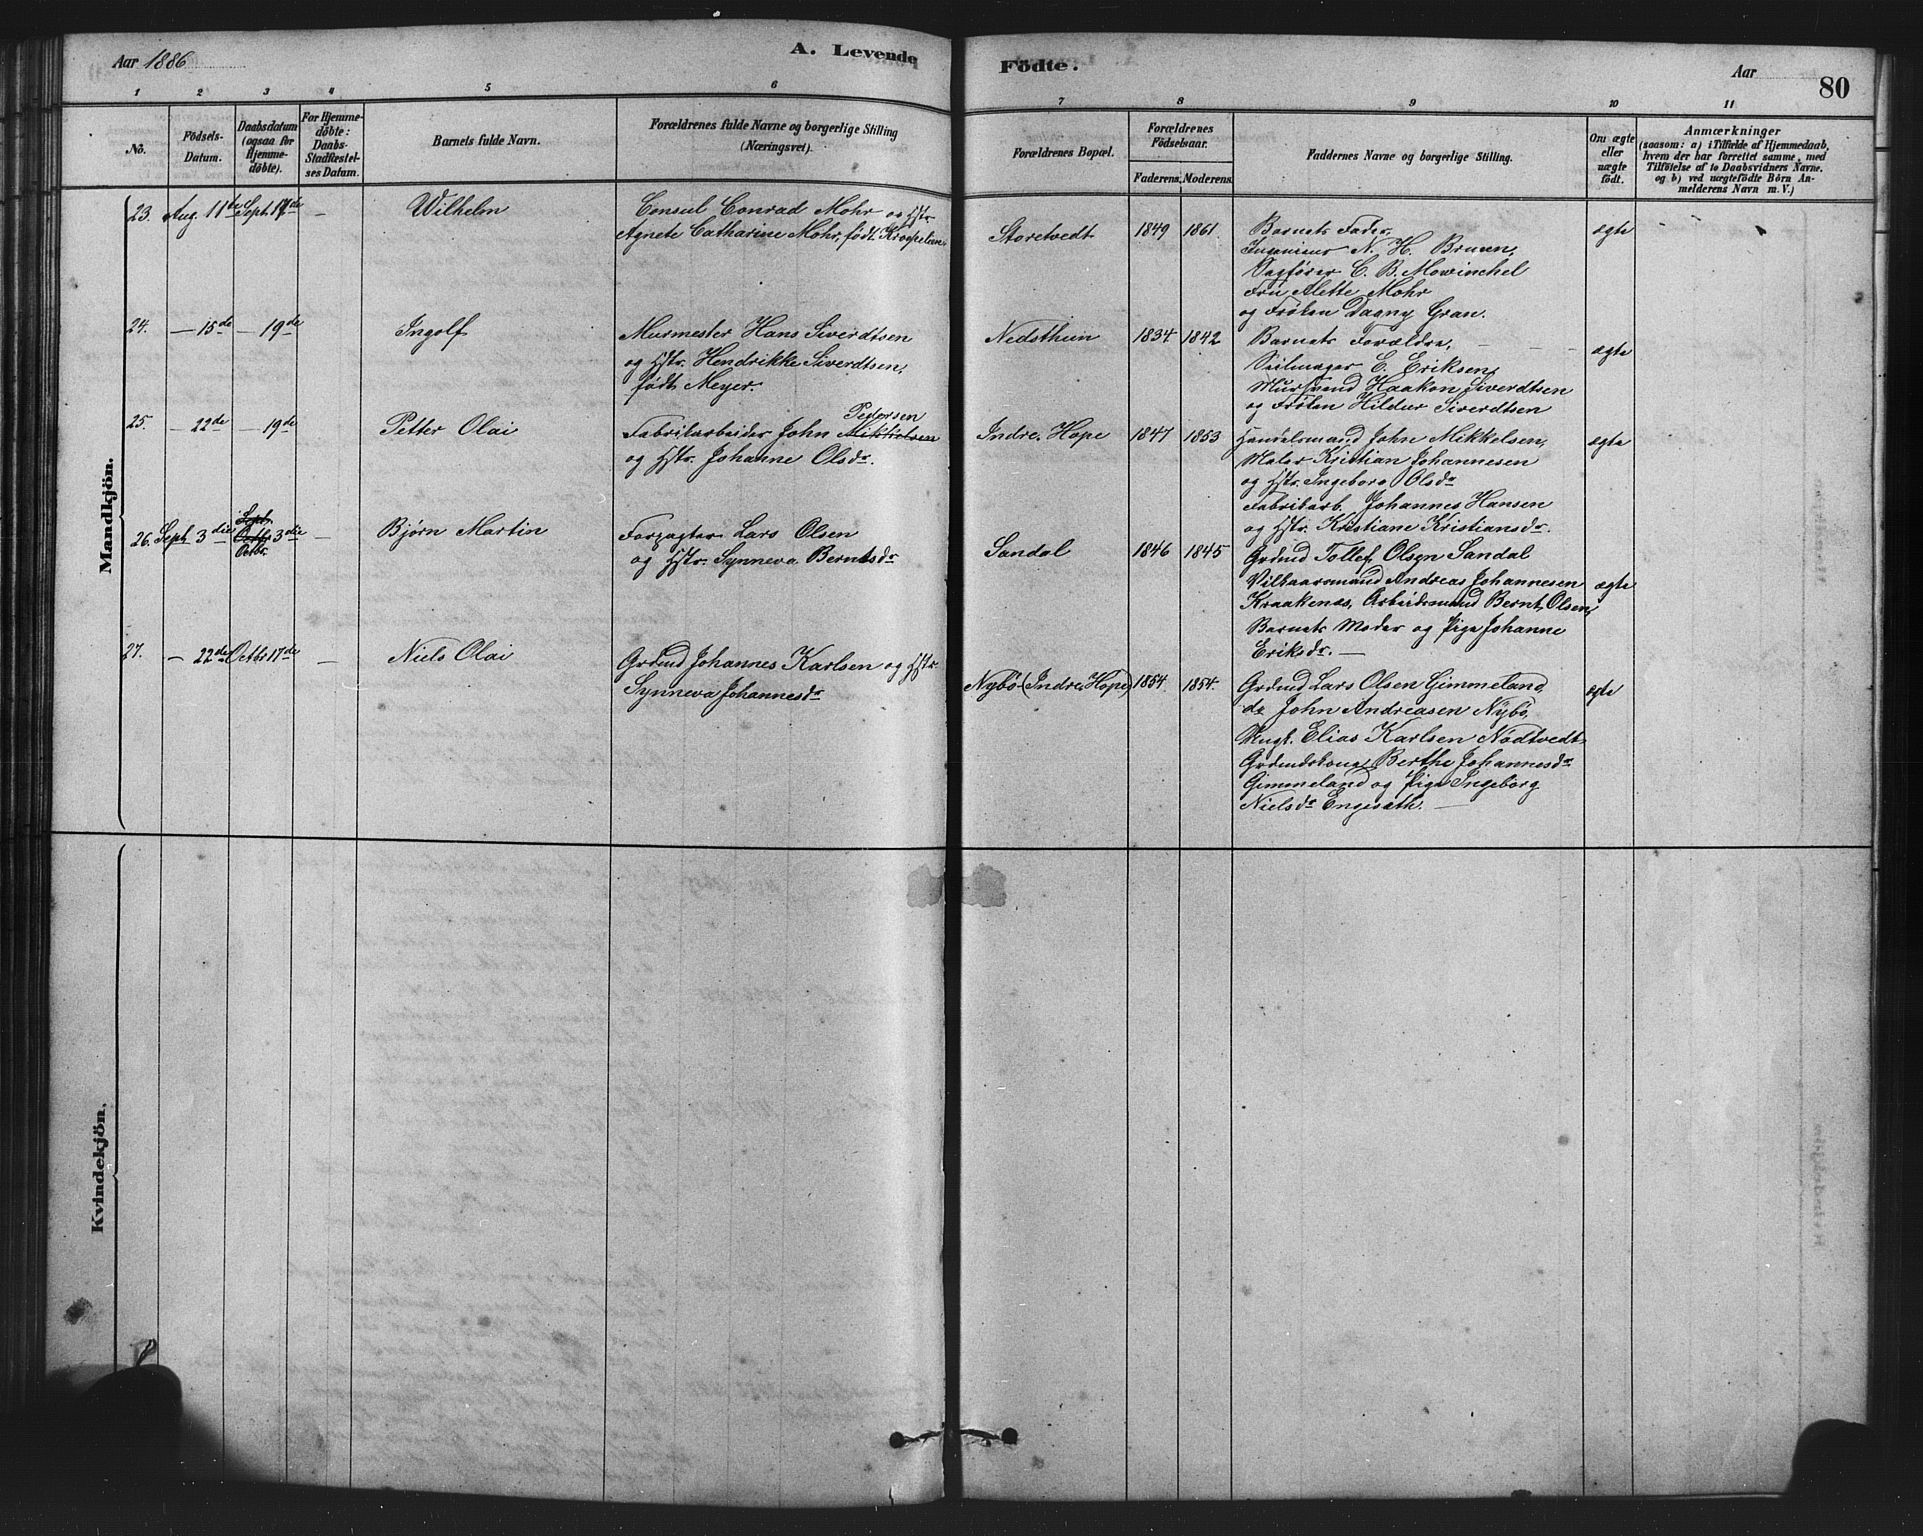 Aar 1886
A. Levende
Födte.
Aar
80
1 2 3 4 5 6 7 8 9 10 11
No.
Födsels-
Datum.
Daabsdatum
(ogsaa for
Hjemme-
döbte).
For Hjemme-
döbte:
Daabs-
Stadfæstel-
ses Datum.
Barnets fulde Navn.
Forældrenes fulde Navne og borgerlige Stilling
(Næringsvei).
Forældrenes Bopæl.
Forældrenes
Födselsaar.
Faderens. Moderens.
Faddernes Navne og borgerlige Stilling.
Om ægte
eller
uægte
födt.
Anmærkninger
(saasom: a) i Tilfælde af Hjemmedaab,
hvem der har forrettet samme, med
Tilföielse af to Daabsvidners Navne.
og b) ved uægtefödte Börn An-
melderens Navn m. V.)
Mandkjön.
23. Aug. 11te Sept. 19de — Wilhelm
Consul Conrad Mohr og Hstr.
Agnete Catharine Mohr, født Kroepelien
Storetvedt 1849 1861
Barnets Fader,
Ingeniør N. H. Bruun,
Sagfører C. B. Mowinchel
Fru Alette Mohr
og Frøken Dagny Gran.
ægte
24. — 15de — 19de Ingolf
Murmester Hans Siverdtsen
og Hstr. Hendrikke Siverdtsen,
født Meyer.
Nedsttun 1834 1842
Barnets Forældre,
Seilmager E. Eriksen,
Mursvend Haakon Siverdtsen
og Frøken Hildur Siverdtsen
ægte
25. — 22de — 19de Petter Olai
Pedersen
Fabrikarbeider John Mikkelsen
og Hstr. Johanne Olsdr.
Indre Hope 1847 1853
Handelsmand John Mikkelsen,
Maler Kristian Johannesen
og Hstr. Ingeborg Olsdr
Fabrikarb. Johannes Hansen
og Hstr. Kristiane Kristiansdr.
ægte
26. Sept. 3die Octbr. 3die — Bjørn Martin
Forpagter Lars Olsen
og Hstr. Synneva Berntsdr
Sandal 1846 1845
Grdmd Tollef Olsen Sandal
Vilkaarsmand Andreas Johannesen
Kraakenæs, Arbeidsmand Bernt Olsen,
Barnets Moder og Pige Johanne
Eriksdr. —
ægte
27. — 22de Octbr 17de — Niels Olai
Grdmd Johannes Karlsen og Hstr.
Synneva Johannesdr
Nybø (Indre Hope) 1854. 1854.
Grdmd Lars Olsen Gimmeland,
do John Andreasen Nybø,
Ungk. Elias Karlsen Nødtvedt
Grdmdskone Berthe Johannesdr
Gimmeland og Pige Ingeborg
Nielsdr Engesæth. —
ægte
Kvindekjön.